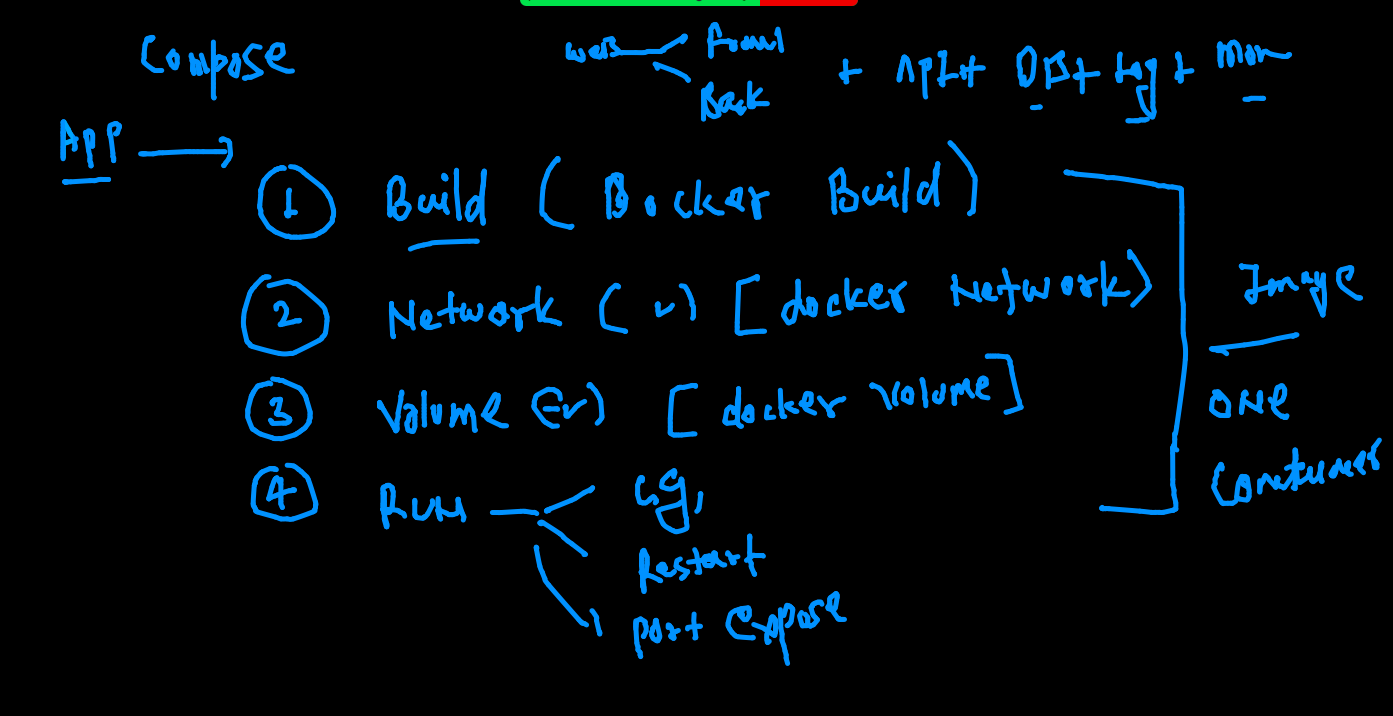 Compose
web Front
Back
+ API + DB + Log + Mon
App
1 Build ( Docker Build )
2 Network ( ) [ docker Network )
3 Volume ( ) [ docker volume ]
4 Run
cg,
Restart
port expose
Image
ONE
Container